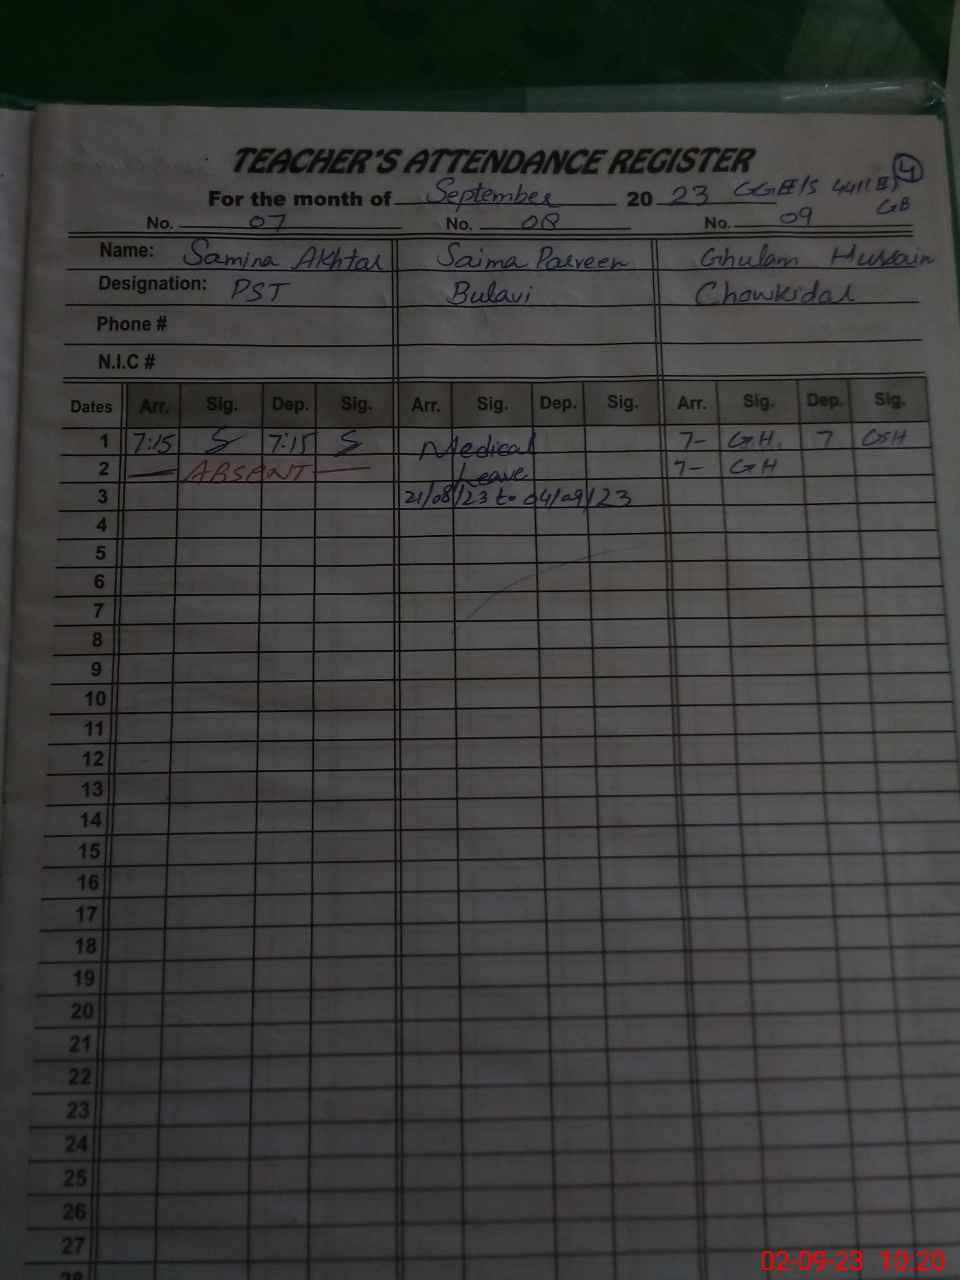 TEACHER'S ATTENDANCE REGISTER 4
For the month of September 2023 GGE/S 441(E)
GB
No. 07 No. 08 No. 09
Name: Samina Akhtar Saima Parveen Ghulam Hussain
Designation: PST Bulavi Chowkidar
Phone #
N.I.C #
Dates Arr. Sig. Dep. Sig. Arr. Sig. Dep. Sig. Arr. Sig. Dep. Sig.
1 7:15 S 7:15 S Medical 7- G.H. 7 GH
2 ABSENT Leave 7- GH
3 21/08/23 to 04/09/23
4
5
6
7
8
9
10
11
12
13
14
15
16
17
18
19
20
21
22
23
24
25
26
27
28
02-09-23 10:20